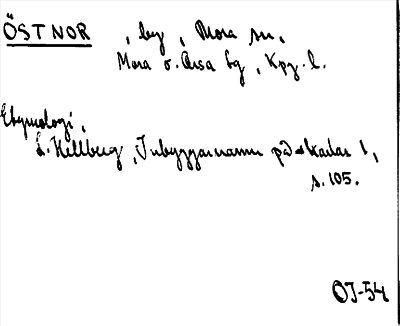 ÖSTNOR, by, Mora sn,
Mora o. Orsa tg, Kpz. l.
Etymologi,
L. Hellberg, Inbyggarnamn på -karlar 1,
s. 105.
OJ-54